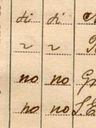 di di
2 2
no no G
ho no S.E